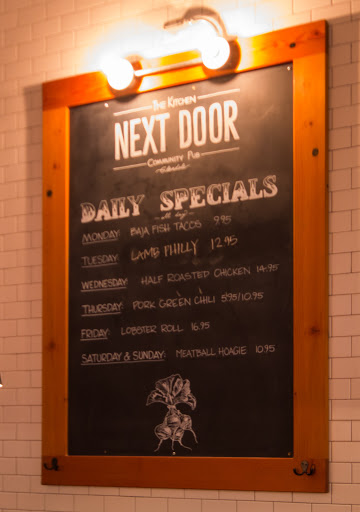 THE KITCHEN
NEXT DOOR
COMMUNITY PUB
Glendale
DAILY SPECIALS
all day
MONDAY: BAJA FISH TACOS 9.95
TUESDAY: LAMB PHILLY 12.95
WEDNESDAY: HALF ROASTED CHICKEN 14.95
THURSDAY: PORK GREEN CHILI 5.95/10.95
FRIDAY: LOBSTER ROLL 16.95
SATURDAY & SUNDAY: MEATBALL HOAGIE 10.95